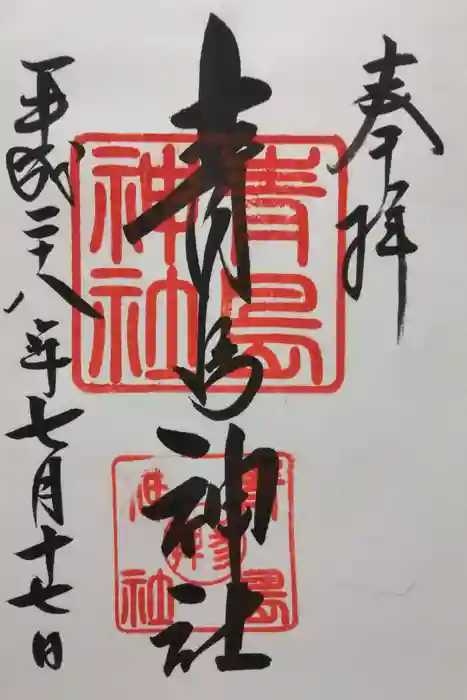 奉拝
青島神社
平成二十八年七月十七日
青島
神社
青島
神社